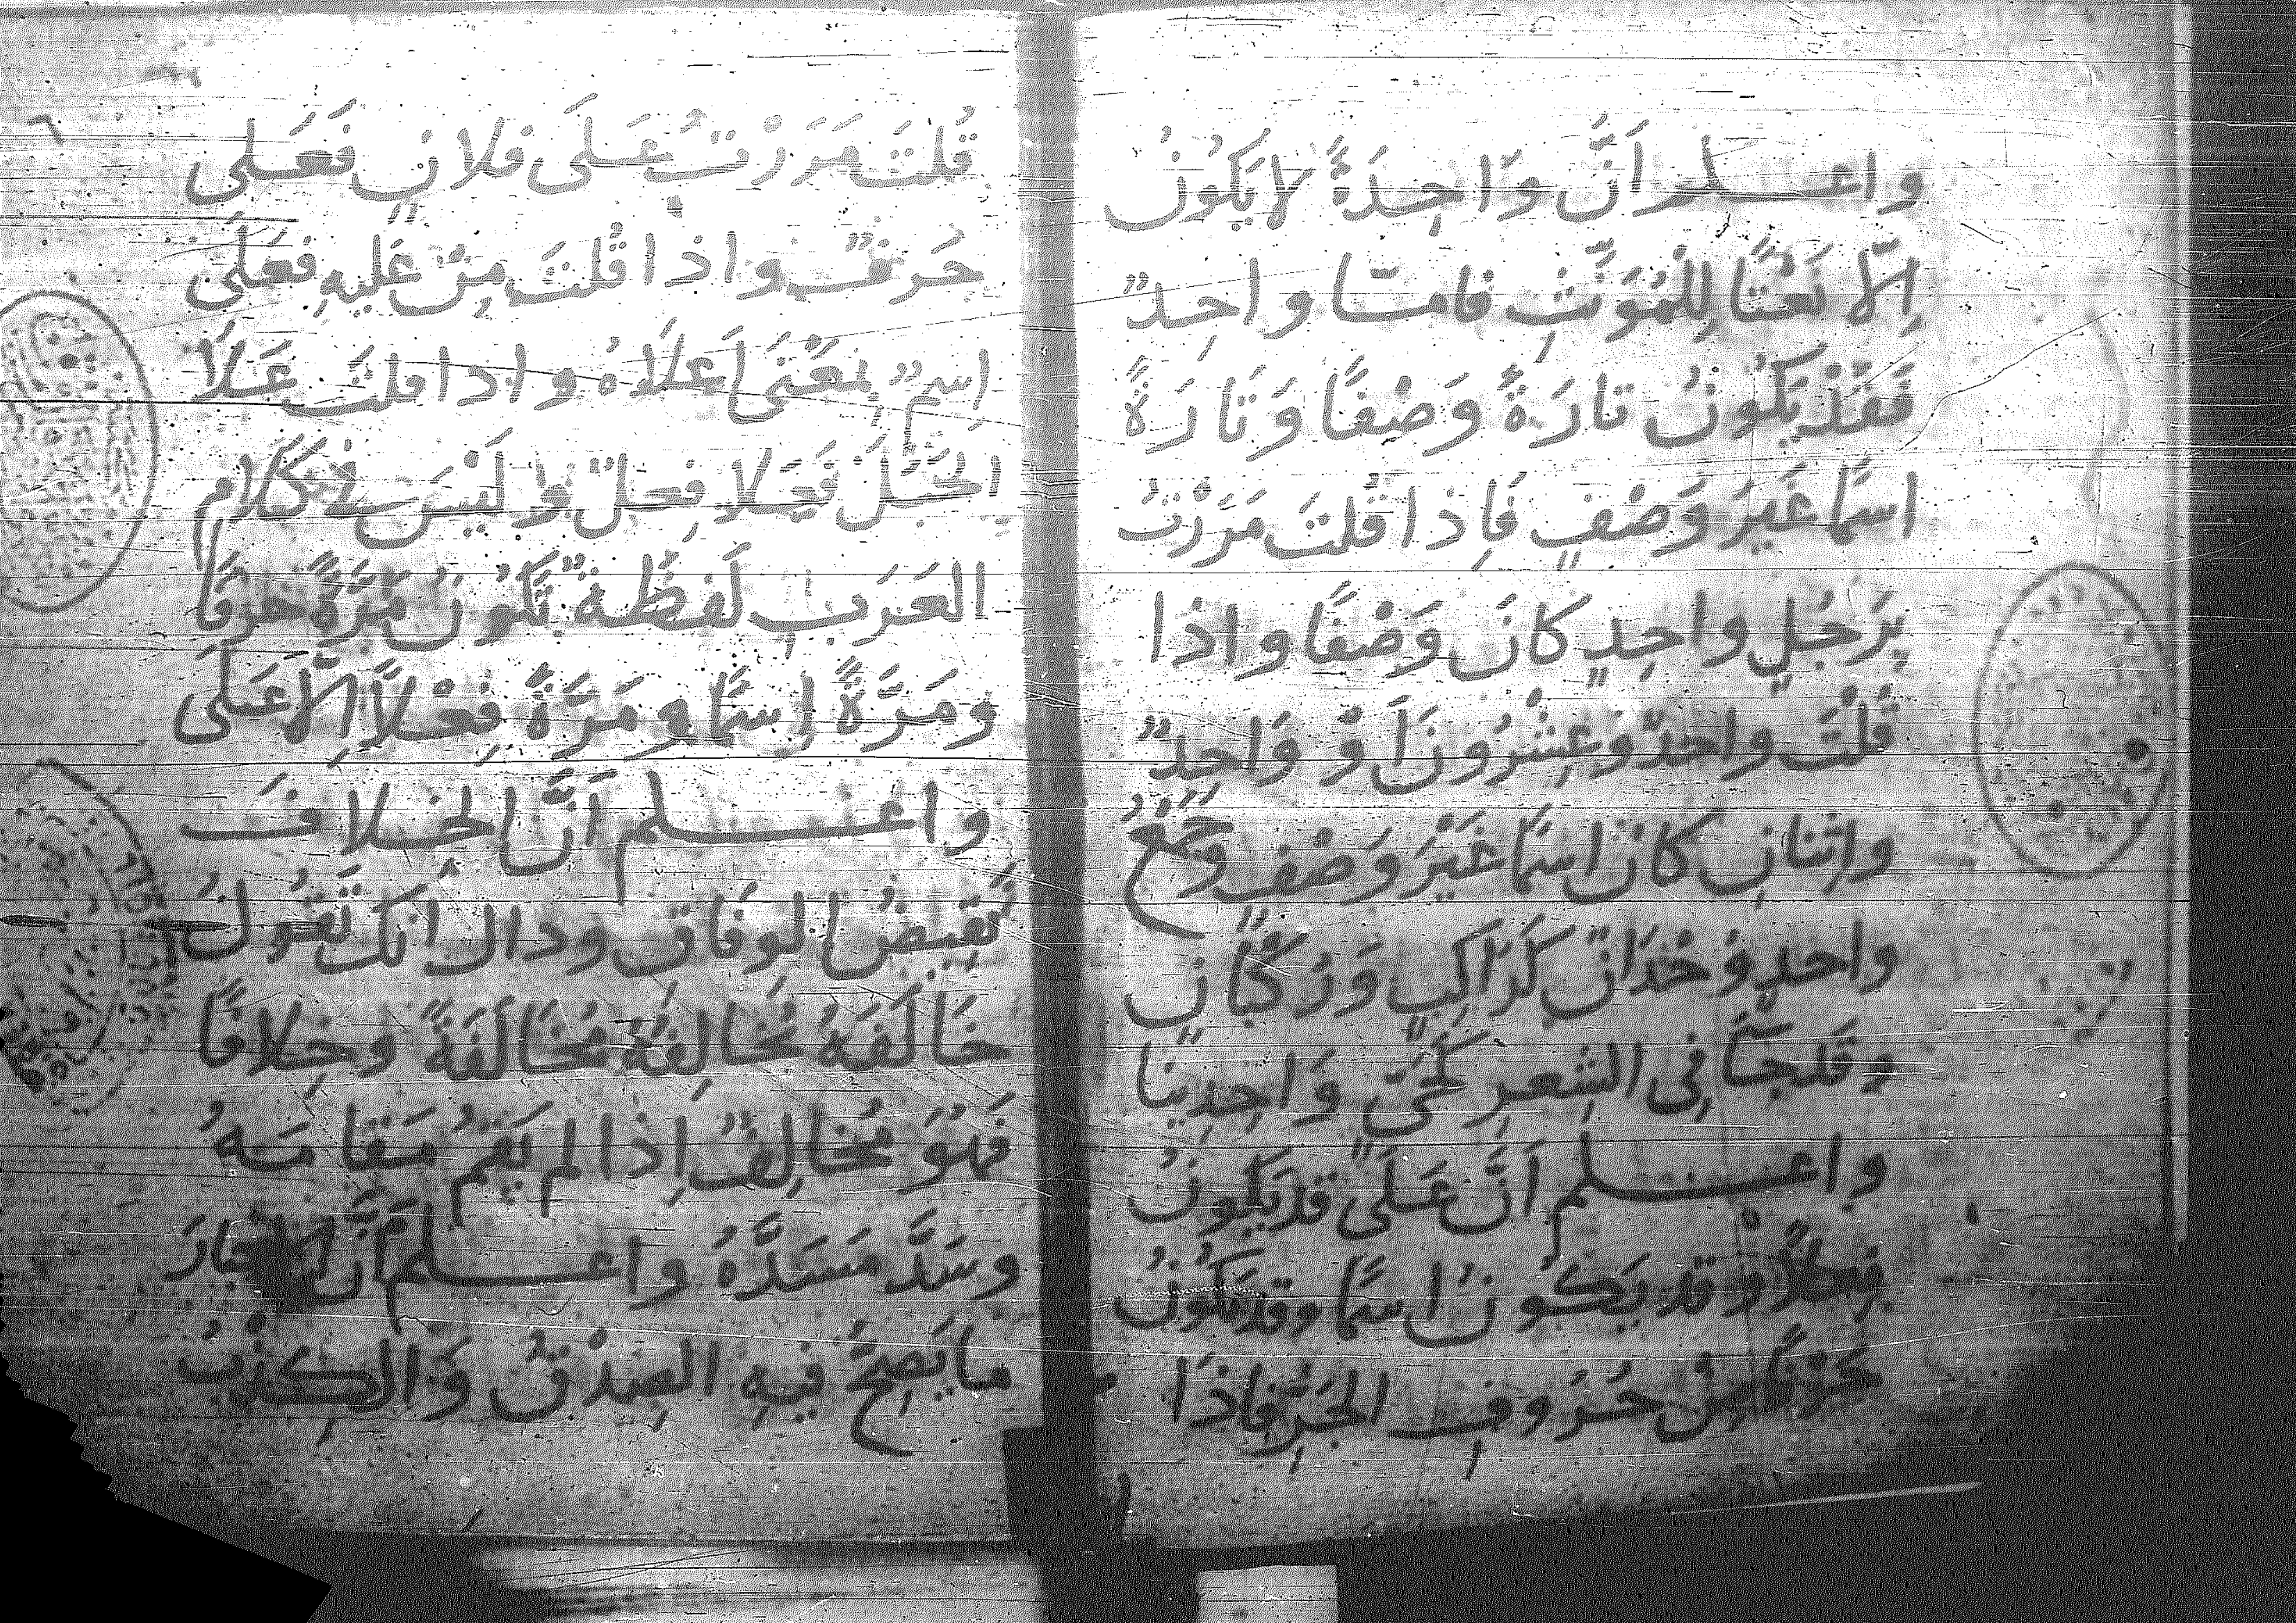 واعلم أَنَّ وَاحِدَةً لا يَكُونُ
إِلّا نَعْتًا لِلْمُؤَنَّثِ فامتا واحِدٌ
فَقَدْ يَكُونُ تارَةً وَصْفًا وَتَارَةً
اسمًا غَيرَ وَصْفٍ فَإِذا قُلتَ مَرَرْتُ
بِرَجُلٍ واحِدٍ كانَ وَصْفًا واذا
قُلْتَ واحدٌ وَعِشْرُونَ أَوْ وَاحِدٌ
واثنانِ كانَ اسمًا غَيْرَ وَصْفٍ وَجَمْعُ
واحدٍ وُحْدَانٌ كَرَاكِبٍ وَرُكْبانٍ
وقَد جَآ فِى الشِعرِ كَحَىٍّ وَاحِدِينَا
واعلم أَنَّ عَلَى قد يَكُونُ
فِعلاً وقد يَكُونُ اسمًا وقد يَكُونُ
حَرْفًا مِنْ حُرُوفِ الجَرِّ فَإِذَا
قُلتَ مَرَرْتُ عَلَى فلانٍ فَعَلى
حَرفٌ واذا قُلتَ مِنْ عَليهِ فَعَلَى
اِسمٌ بِمَعْنَى أَعلَاهُ واذا قلتَ عَلَا
الجَبَلَ فَعَلا فِعلٌ وَلَيْسَ فى كَلامِ
العَرَبِ لَفظَةٌ تَكُونُ مَرَّةً حَرفًا
ومَرَّةً اِسمًا ومَرَّةً فِعْلاً إِلّا عَلَى
واعلم أَنَّ الخِلافَ
نَقِيضُ الوِفَاقِ وذاك أَنَّكَ تَقُولُ
خَالَفَهُ يُخَالِفُهُ مُخَالَفَةً وخِلافًا
فَهُوَ مُخالِفٌ إِذا لم يَقُمْ مَقَامَهُ
وسَدَّ مَسَدَّهُ واعلم أَنَّ الاخبارَ
ما يَصِحُّ فِيهِ الصِدْقُ وَالكِذْبُ